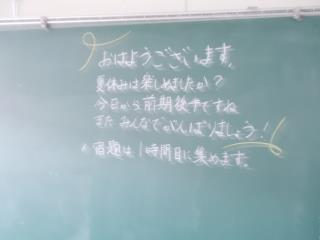 おはようございます。
夏休みは楽しめましたか？
今日から前期後半ですね
また みんなでがんばりましょう！
宿題は1時間目に集めます。